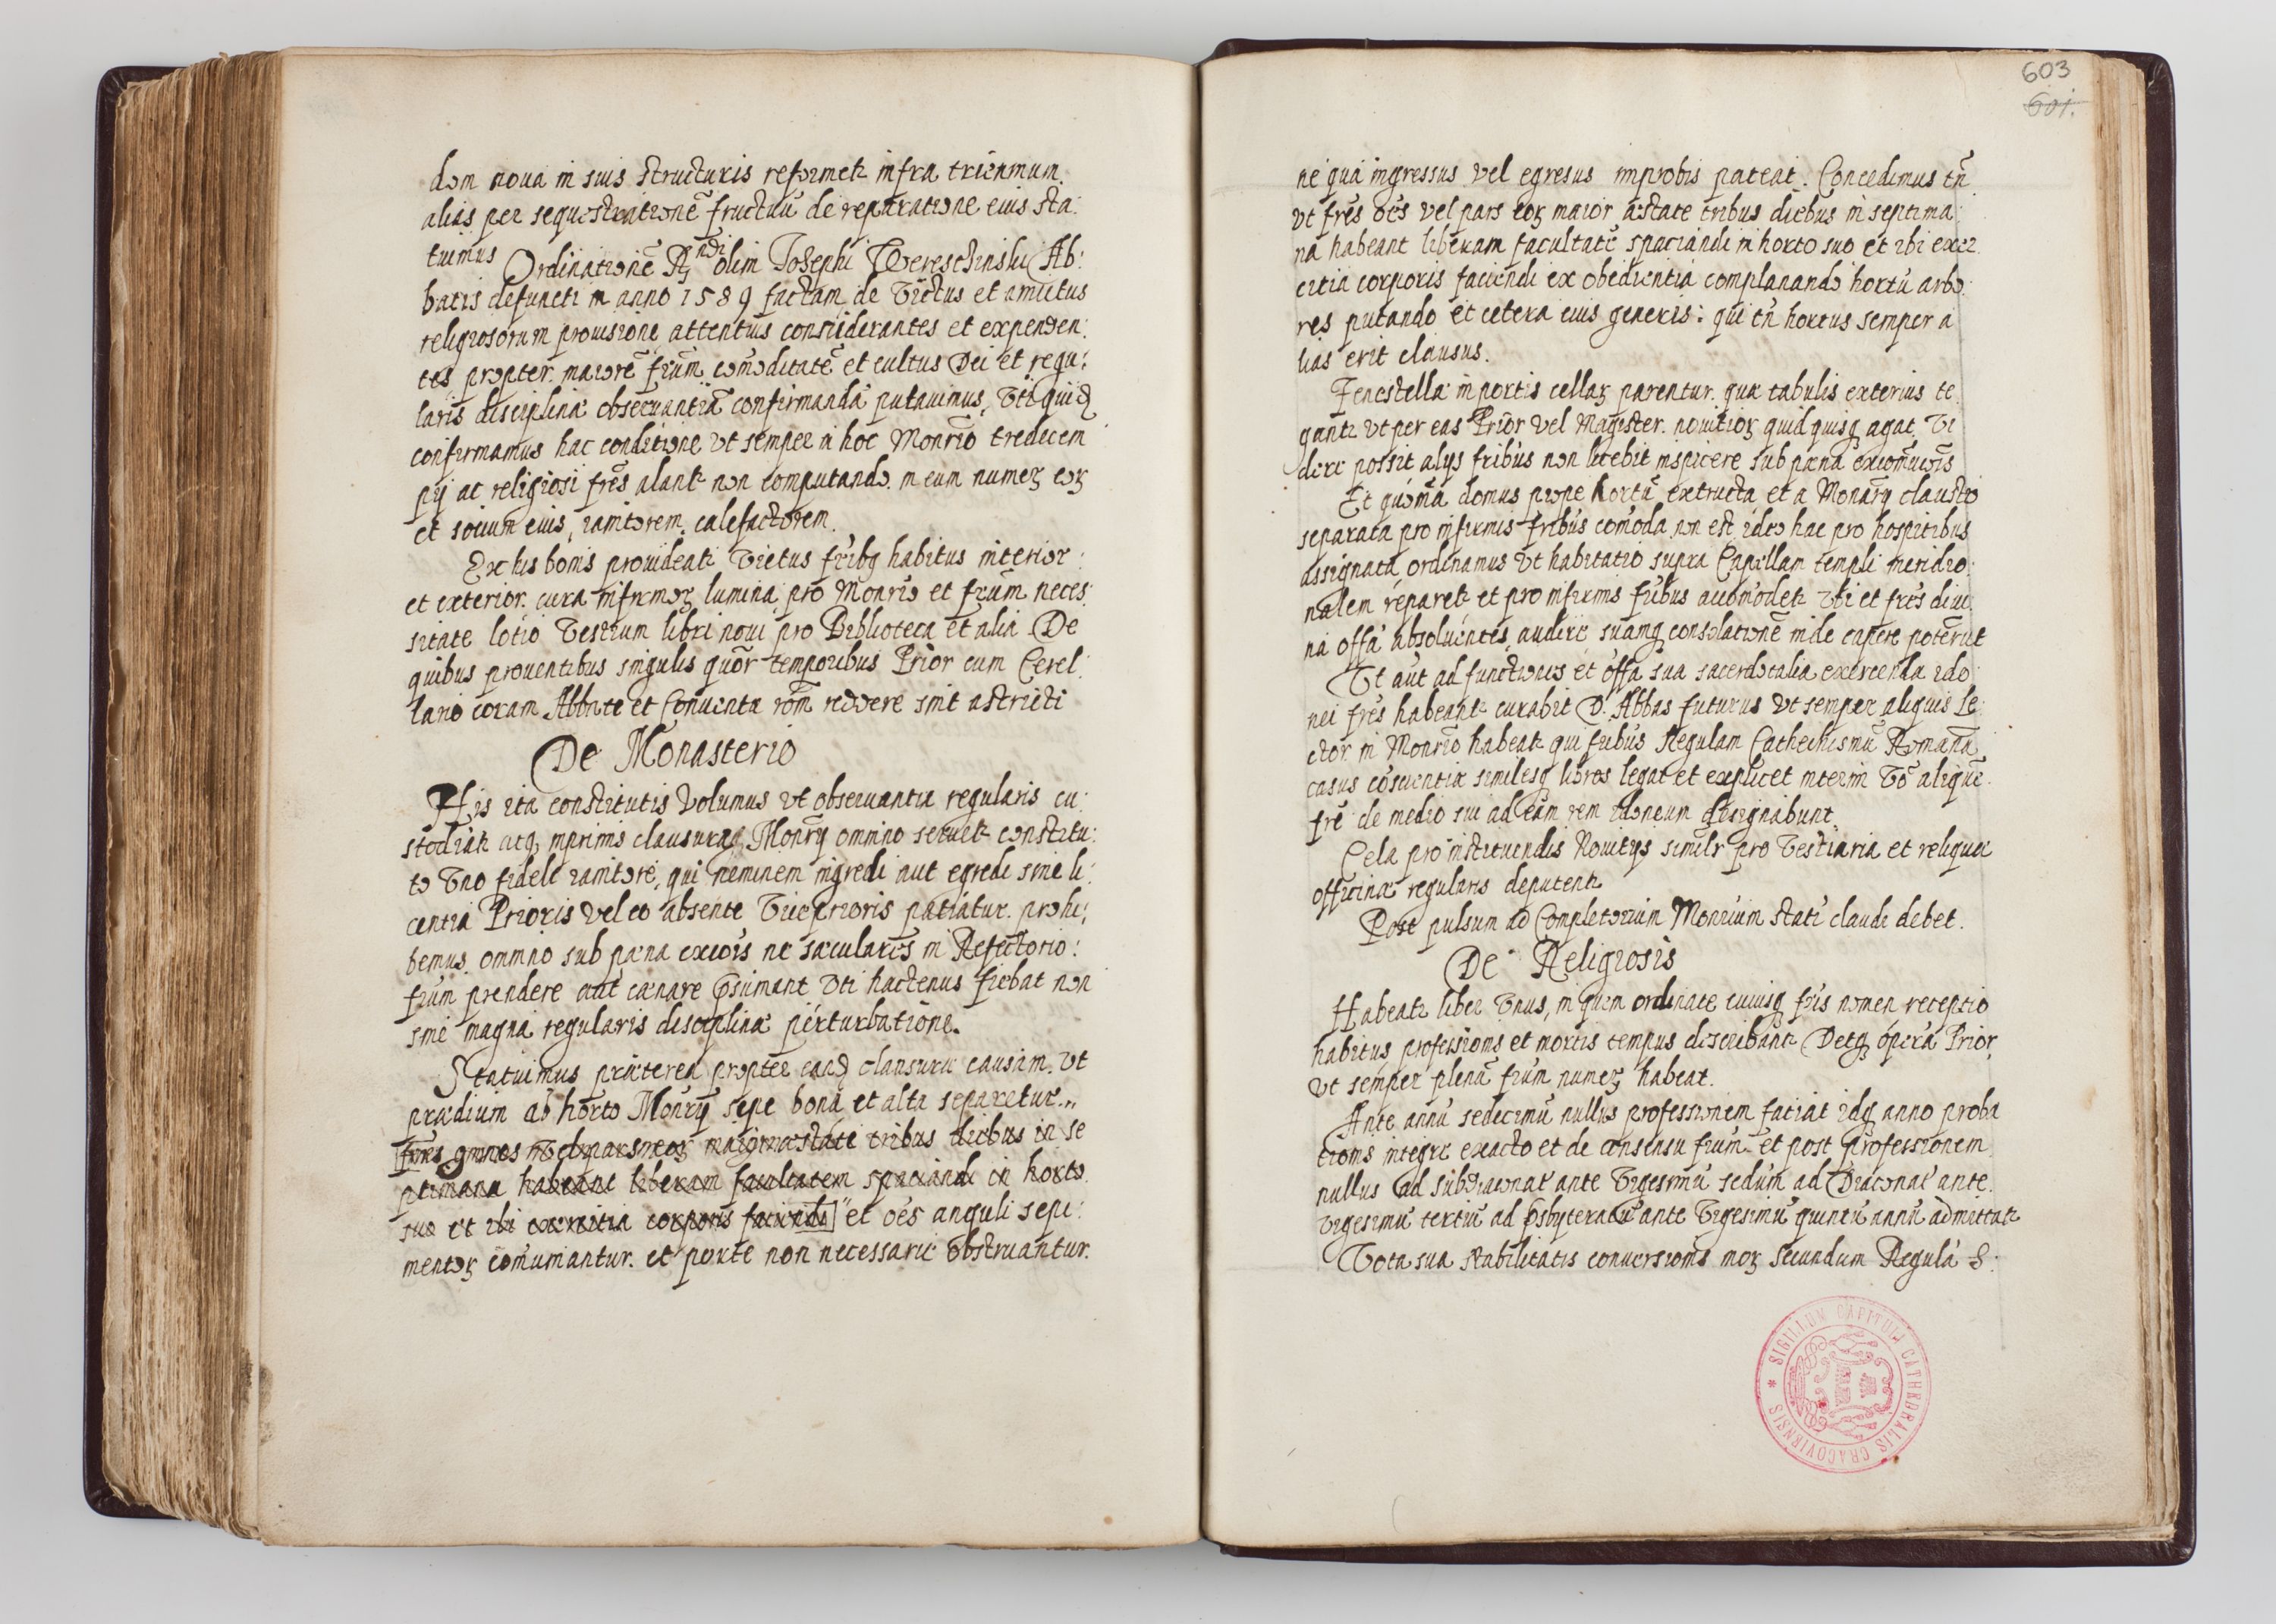 dem noua in suis structuris reformetꝛ infra trienmum.
alias per sequestrationē fructuū de reparatione eius sta:
tuimus Ordinationē R̄ndi olim Josephi Wereschinski Ab:
batis defuncti in anno 1589 factam de Victus et amictus
religiosorum prouisione attentius considerantes et expenden:
tes propter maiorē frūm cōmoditatē et cultus Dei et regu:
laris disciplinæ obseruantiā confirmandā putauimus, Vti quidē
confirmamus hac conditione vt semper in hoc Monrio tredecem
pij ac religiosi frēs alantꝛ non computando in eum numeꝝ eoꝝ
et socium eius, ianitorem, calefactorem.
Ex his bonis prouideatꝛ Victus fribꝫ habitus interior
et exterior. cura infirmoꝝ lumina pro Monrio et frūm neces:
sitate lotio Vestium libri noui pro Biblioteca et alia De
quibus prouentibus singulis quōr temporibus Prior cum Cerel:
lario coram Abbate et Conuentu rōm reddere sint astricti
De Monasterio
His ita constitutis Volumus vt obseruantia regularis cu:
stodiātꝛ atqꝫ inprimis clausuraqꝫ Monrÿ omnino seruetꝛ constitu:
to Vno fideli ianitore, qui neminem ingredi aut egredi sine li:
centia Prioris vel eo absente Viceprioris patiatur. prohi:
bemus omnino sub pæna excōis ne sæculares in Refectorio:
frūm prendere aut cænare p̄sumant Vti hactenus fiebat non
sine magna regularis disciplinæ perturbatione.
Statuimus præterea propter eandē clausuræ causam. vt
prædium ab horto Monrÿ sepe bona et alta separetur.,,
frēs omnes vel pars eoꝝ maior æstate tribus diebus in se
ptimana habeant liberam facultatem spaciandi in horto
suo et ibi exercitia corporis faciendi" et oēs anguli sepi:
mentoꝝ cōmuniantur. et portæ non necessariæ obstruantur.
603
601.
ne qua ingressus vel egresus improbis pateat. Concedimus tn̄
vt frēs oēs vel pars eoꝝ maior æstate tribus diebus in septima:
na habeant liberam facultatē spaciandi in horto suo et ibi exer
citia corporis faciendi ex obedientia complanando hortū arbo:
res putando et cetera eius generis: qui tn̄ hortus semper a
lias erit clausus.
Fenestellæ in portis cellaꝝ parentur. quæ tabulis exterius te
gantꝛ vt per eas Prior vel Magister. nouitioꝝ quid quisqꝫ agat, Vi
dere possit alijs fribus non licebit inspicere sub pæna excōmuīōis
Et quōniā domus prope hortū extructa et a Monrÿ claustro
separata pro infirmis fribus comoda non est ideo hac pro hospitibus
assignata ordinamus vt habitatio supra Capellam templi meridio:
nalem reparetꝛ et pro infirmis fribus accōmodetꝛ Vbi et frēs diui:
na offā absoluentes, audire suamqꝫ consolationē inde capere poterūt
Vt aūt ad functiones et offā sua sacerdotalia exercenda ido
nei frēs habeantꝛ curabit D. Abbas futurus vt semper aliquis Le
ctor in Monrio habeatꝛ qui fribus Regulam Cathechismū Romanū
casus cōscientiæ similesqꝫ libros legat et explicet interim Vō aliquē
frē de medio sui ad eam rem idoneum designabunt.
Cela pro instituendis Nouitijs similr̄ pro Vestiaria et reliquæ
officinæ regularis deputentꝛ
Post pulsum ad Completorium Monrium stati claudi debet.
De Religiosis
Habeatꝛ liber Vnus, in quem ordinate cuiusqꝫ fris nomen receptio
habitus professionis et mortis tempus describantꝛ Detqꝫ opera Prior,
vt semper plenū frūm numeꝝ habeat.
Ante annū sedecimū nullus professionem faciat idqꝫ anno proba
tionis integre exacto et de consensu frūm et post professionem
nullus ad subdiaconat' ante Vigesimū sedūm ad Diaconat' ante
vigesimū tertiū ad p̄sbyteratū ante Vigesimū quintū annū admittatꝛ
Vota sua stabilitatis conuersionis moꝝ secundum Regulā S:
SIGILLUM CAPITULI CATHEDRALIS CRACOVIENSIS